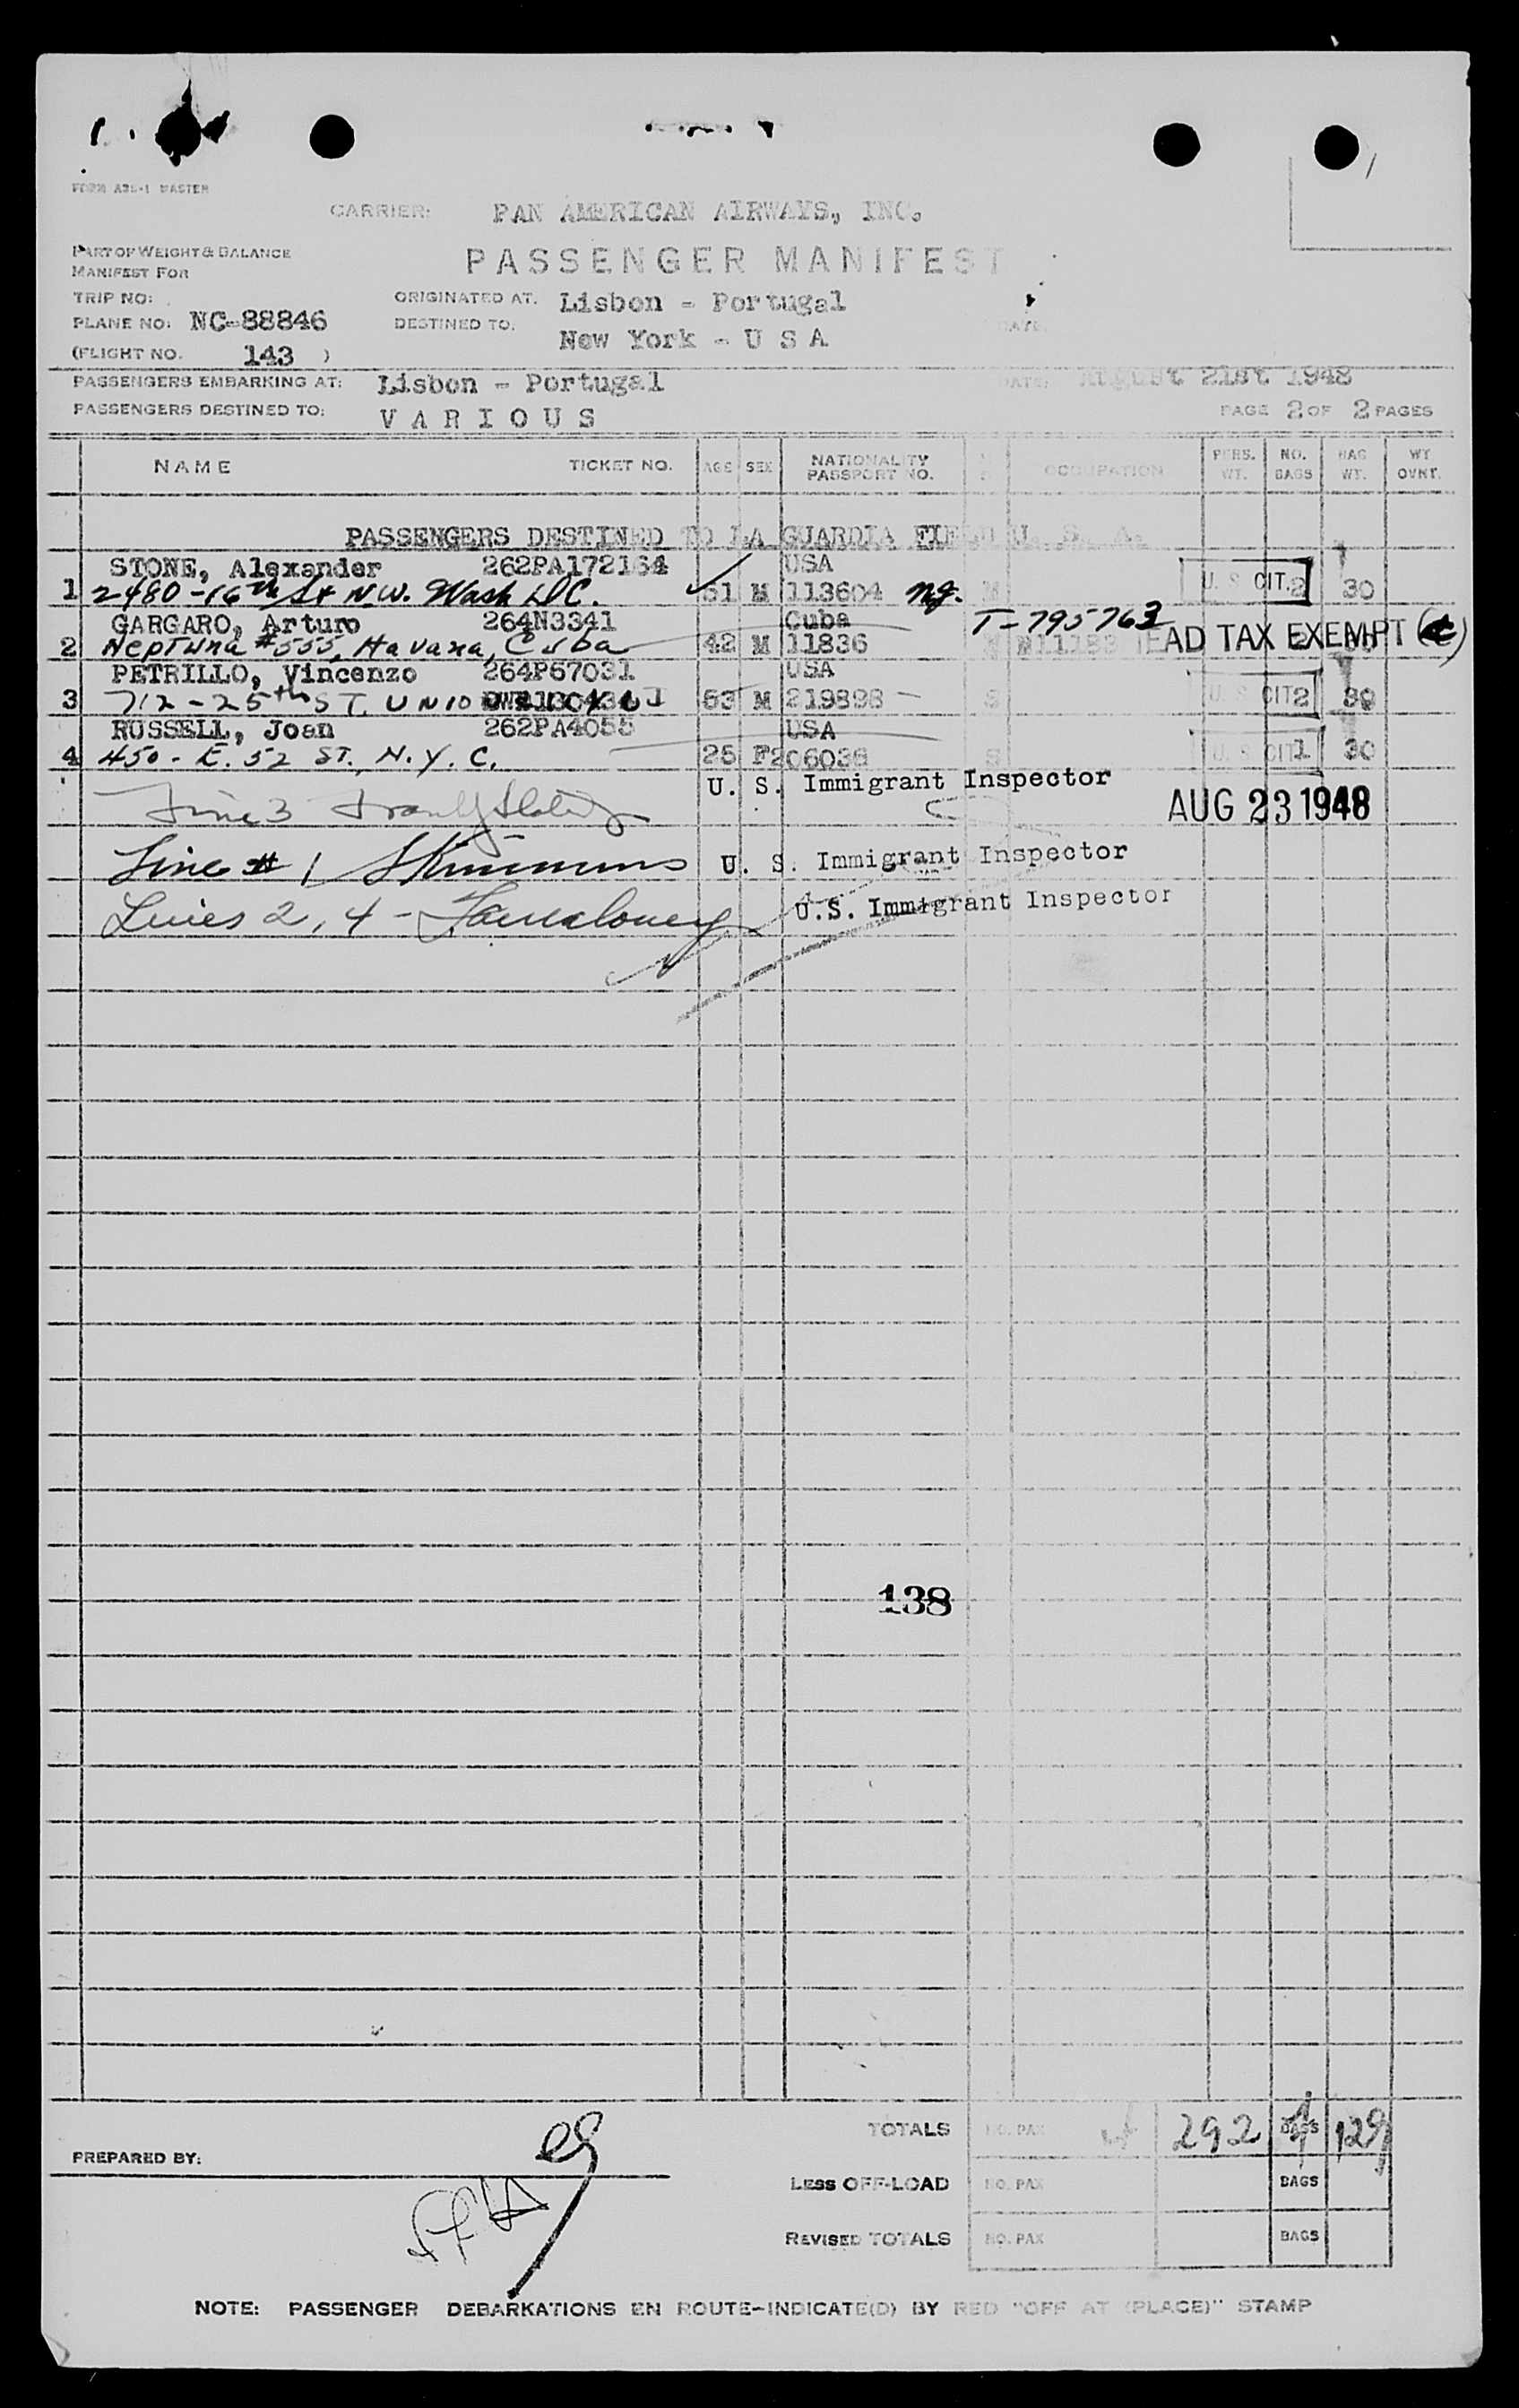 FORM A35-1 MASTER
CARRIER: PAN AMERICAN AIRWAYS, INC.
PART OF WEIGHT & BALANCE
MANIFEST FOR
PASSENGER MANIFEST
TRIP NO:
ORIGINATED AT. Lisbon - Portugal
PLANE NO: NC-88846
DESTINED TO. New York - U S A
DATE
(FLIGHT NO. 143 )
PASSENGERS EMBARKING AT: Lisbon - Portugal
DATE: August 21st 1948
PASSENGERS DESTINED TO: VARIOUS
PAGE 2 OF 2 PAGES
NAME TICKET NO. AGE SEX NATIONALITY PASSPORT NO. OCCUPATION PERS. WT. NO. BAGS BAG WT. WT OVNT.
PASSENGERS DESTINED TO LA GUARDIA FIELD U. S. A.
STONE, Alexander 262PA172164 USA
1 2480-16th St N.W. Wash DC. 51 M 113604 ng. M U. S. CIT. 2 30
GARGARO, Arturo 264N3341 Cuba T-795763
2 Neptuna #555, Havana, Cuba 42 M 11836 HEAD TAX EXEMPT
PETRILLO, Vincenzo 264P67031 USA
3 712-25th ST. UNION 53 M 219898 S U. S. CIT 2 39
RUSSELL, Joan 262PA4055 USA
4 450-E. 52 ST., N.Y.C. 25 F 206036 S U. S. CIT 1 30
U. S. Immigrant Inspector
Line 3
AUG 23 1948
Line # 1
U. S. Immigrant Inspector
Lines 2, 4 -
U.S. Immigrant Inspector
138
TOTALS NO. PAX 4 292 BAGS 129
PREPARED BY:
LESS OFF-LOAD NO. PAX BAGS
REVISED TOTALS NO. PAX BAGS
NOTE: PASSENGER DEBARKATIONS EN ROUTE-INDICATE(D) BY RED "OFF AT (PLACE)" STAMP